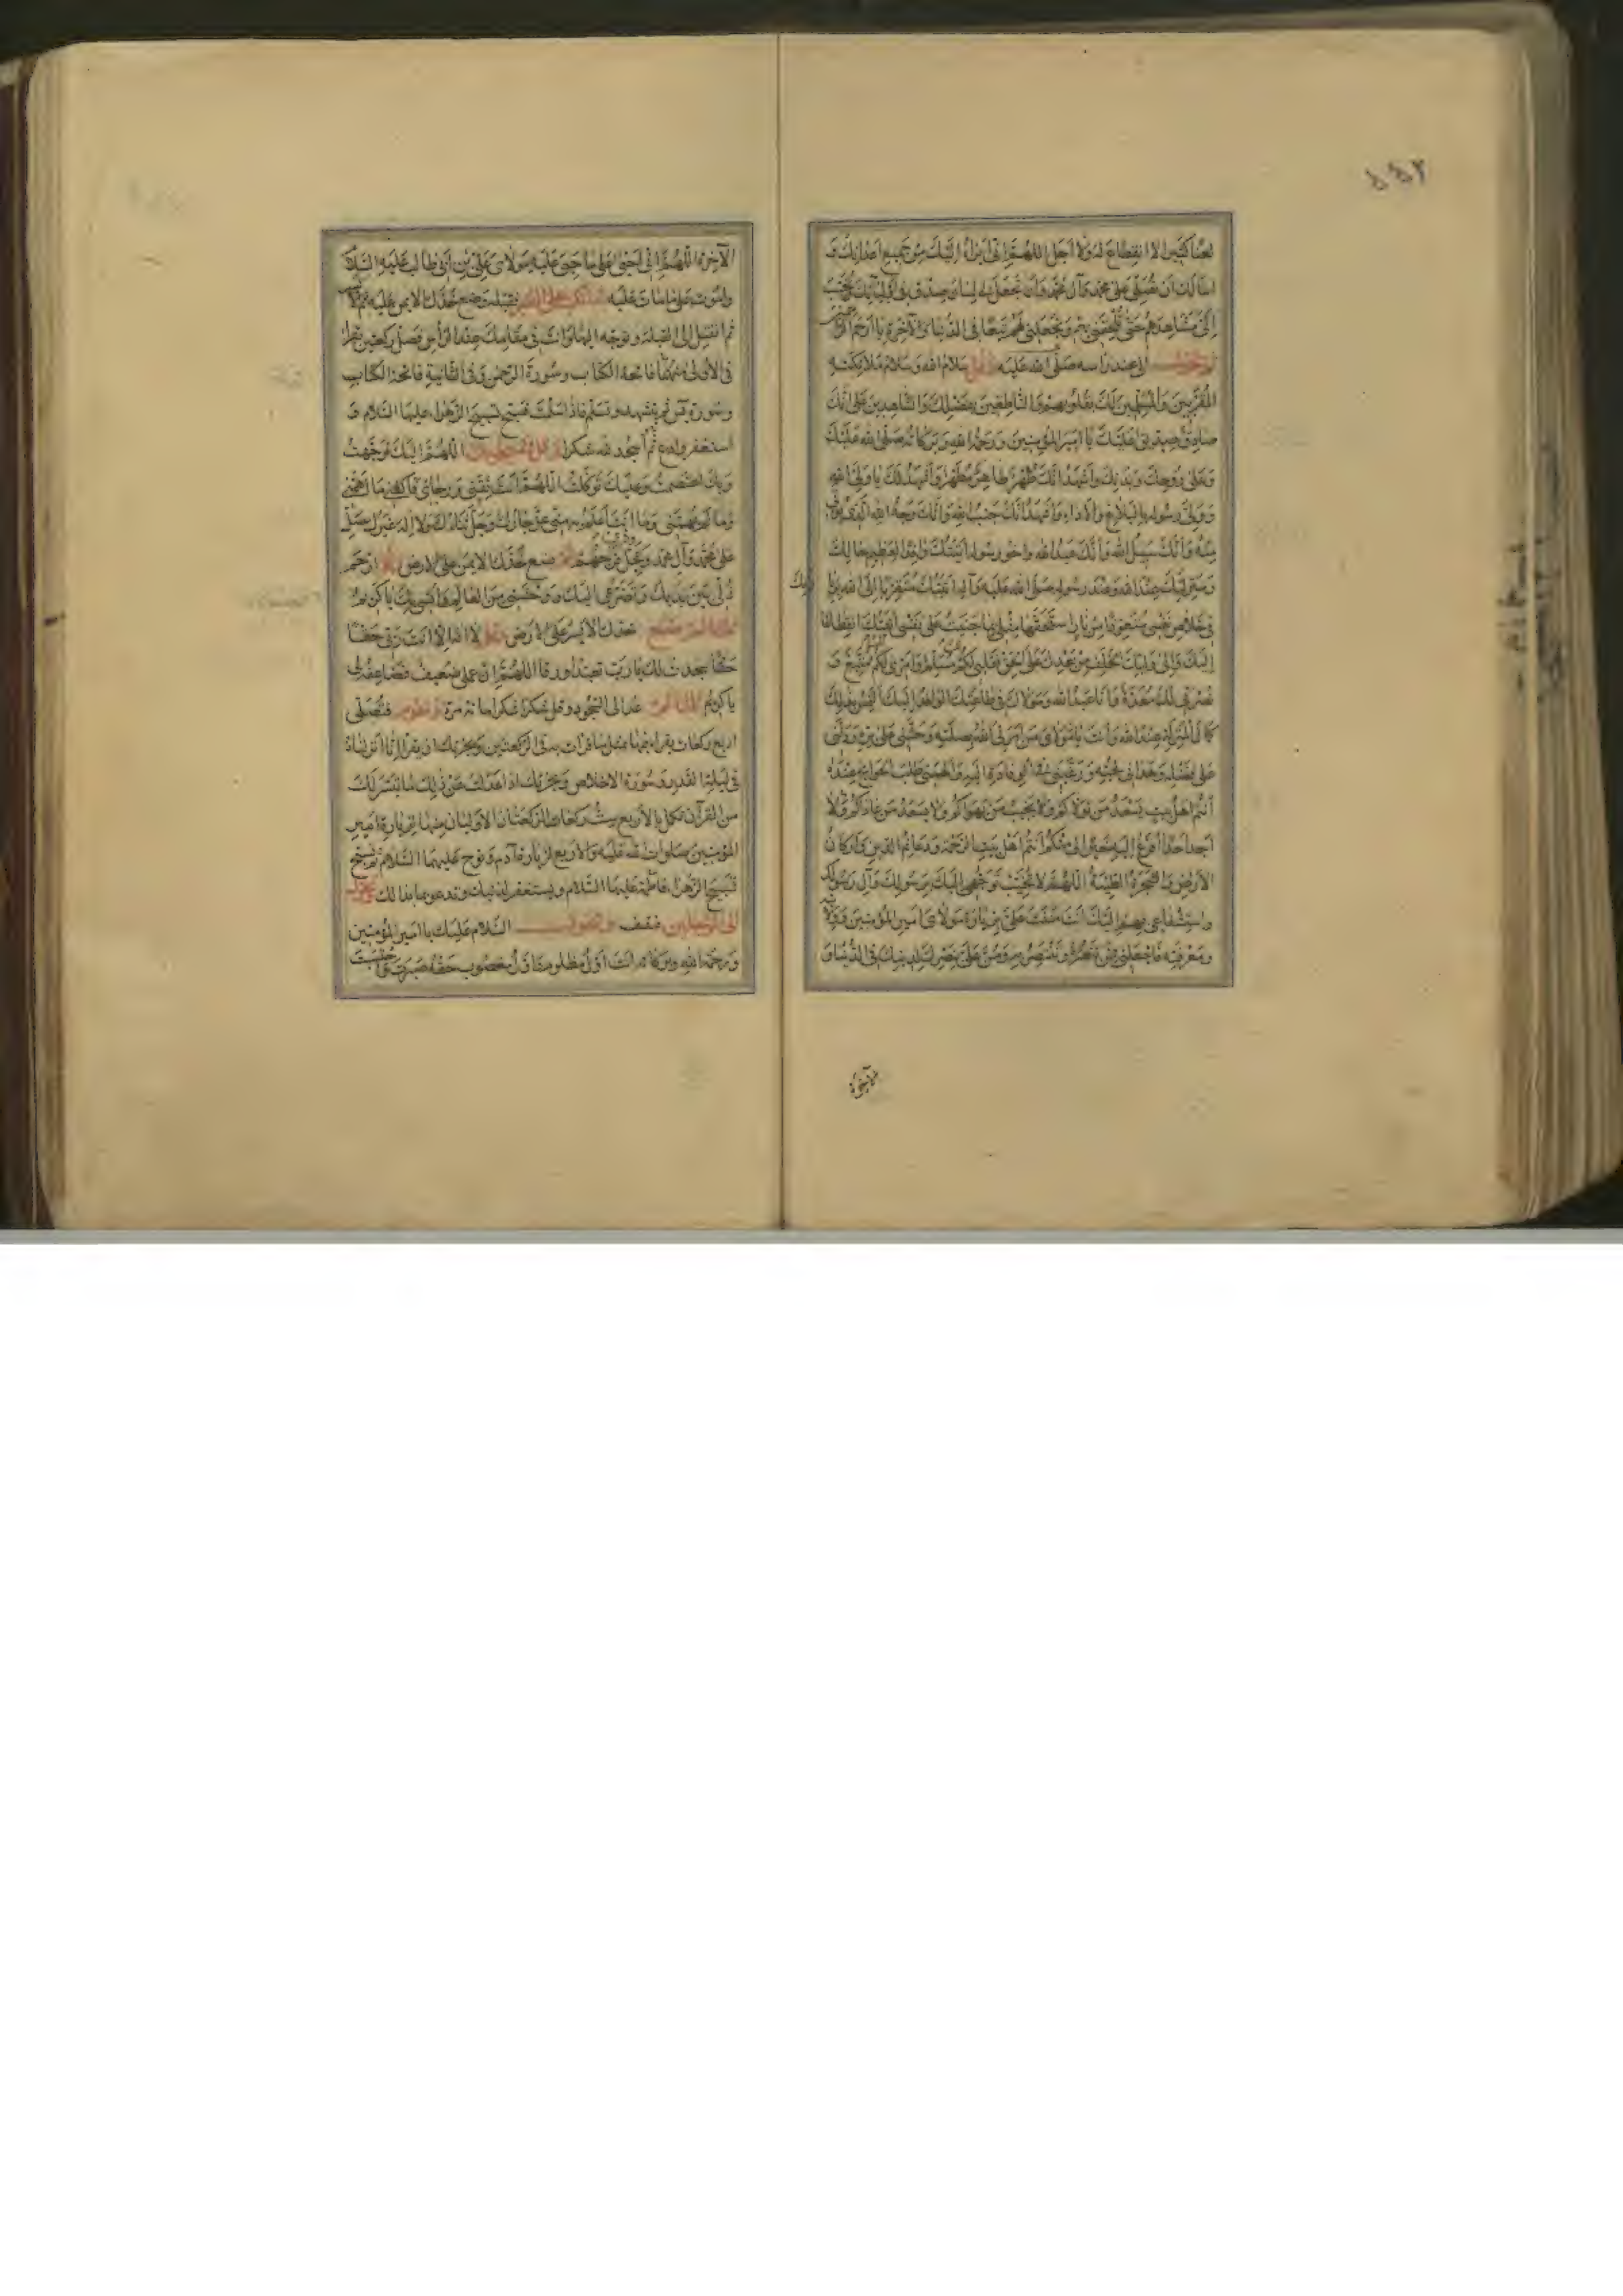 لعنا كثيرا لا انقطاع له ولا اجل اللهم اني ابرأ اليك من جميع اعدائك و
اسألك ان تصلي على محمد وآل محمد وان تجعل لي لسان صدق في اوليائك وتحبب
الي مشاهدهم حتى تلحقني بهم وتجعلني لهم تبعا في الدنيا والآخرة يا ارحم الراحمين
الى عند رأسه صلى الله عليه وقل سلام الله وسلام ملائكته
المقربين والمسلمين لك بقلوبهم والناطقين بفضلك والشاهدين على انك
صادق صديق عليك يا امير المؤمنين ورحمة الله وبركاته صلى الله عليك
وعلى روحك وبدنك واشهد انك طهر طاهر مطهر واشهد لك يا ولي الله
وولي رسوله بالبلاغ والاداء واشهد انك جنب الله وانك وجه الله الذي يؤتى
منه وانك سبيل الله وانك عبد الله واخو رسوله اتيتك وافدا لعظيم حالك
ومنزلتك عند الله وعند رسوله صلى الله عليه وآله اتيتك متقربا الى الله
في خلاص نفسي متعوذا من نار استحقها مثلي بما جنيت على نفسي اتيتك انقطاعا
اليك والى وليك الخلف من بعدك على الحق فقلبي لكم مسلم وامري لكم متبع و
نصرتي لك معدة وانا عبد الله ومولاك في طاعتك الوافد اليك التمس بذلك
كمال المنزلة عند الله وانت يا مولاي من امرني الله بصلته وحثني على بره ودلني
على فضله وهداني لحبه ورغبني في الوفادة اليه والهمني طلب الحوائج عنده
انتم اهل بيت يسعد من تولاكم ولا يخيب من يهواكم ولا يسعد من عاداكم ولا
اجد احدا افزع اليه خيرا لي منكم انتم اهل بيت الرحمة ودعائم الدين واركان
الارض والشجرة الطيبة اللهم لا تخيب توجهي اليك برسولك وآل رسولك
واستشفاعي بهم اليك انت مننت علي بزيارة مولاي امير المؤمنين وولايته
ومعرفته فاجعلني ممن تنصره وتنتصر به ومن علي بنصرك لدينك في الدنيا و
الآخرة
الآخرة اللهم اني احيى على ما حيي عليه مولاي علي بن ابي طالب عليه السلام
واموت على ما مات عليه فقبله وضع خدك الايمن عليه ثم الايسر
ثم انفتل الى القبلة وتوجه اليها وانت في مقامك عند الرأس فصل ركعتين تقرأ
في الاولى منهما فاتحة الكتاب وسورة الرحمن وفي الثانية فاتحة الكتاب
وسورة يس ثم تشهد وتسلم فاذا سلمت فسبح تسبيح الزهراء عليها السلام و
استغفر وادع ثم اسجد لله شكرا اللهم اليك توجهت
وبك اعتصمت وعليك توكلت اللهم انت ثقتي ورجائي فاكفني ما اهمني
وما لم يهمني وما انت اعلم به مني عز جارك وجل ثناؤك ولا اله غيرك صل
على محمد وآل محمد وعجل فرجهم ثم ضع خدك الايمن على الارض وقل ارحم
ذلي بين يديك وتضرعي اليك ووحشتي من العالم وانسي بك يا كريم
خدك الايسر على الارض وقل لا اله الا انت ربي حقا
حقا سجدت لك يا رب تعبدا ورقا اللهم ان عملي ضعيف فضاعفه لي
يا كريم عد الى السجود وقل شكرا شكرا مائة مرة فتصلي
اربع ركعات يقرأ فيها بمثل ما قرأت به في الركعتين ويجزيك ان تقرأ انا انزلناه
في ليلة القدر وسورة الاخلاص ويجزيك اذا عدلت عن ذلك ما تيسر لك
من القرآن تكمل بالاربع ست ركعات الركعتان الاوليان منها لزيارة امير
المؤمنين صلوات الله عليه والاربع لزيارة آدم ونوح عليهما السلام ثم تسبح
تسبيح الزهراء فاطمة عليها السلام ويستغفر لذنبك وتدعو بما بدا لك
الى الرجلين فقف وتقول السلام عليك يا امير المؤمنين
ورحمة الله وبركاته انت اول مظلوم واول مغصوب حقه صبرت واحتسبت